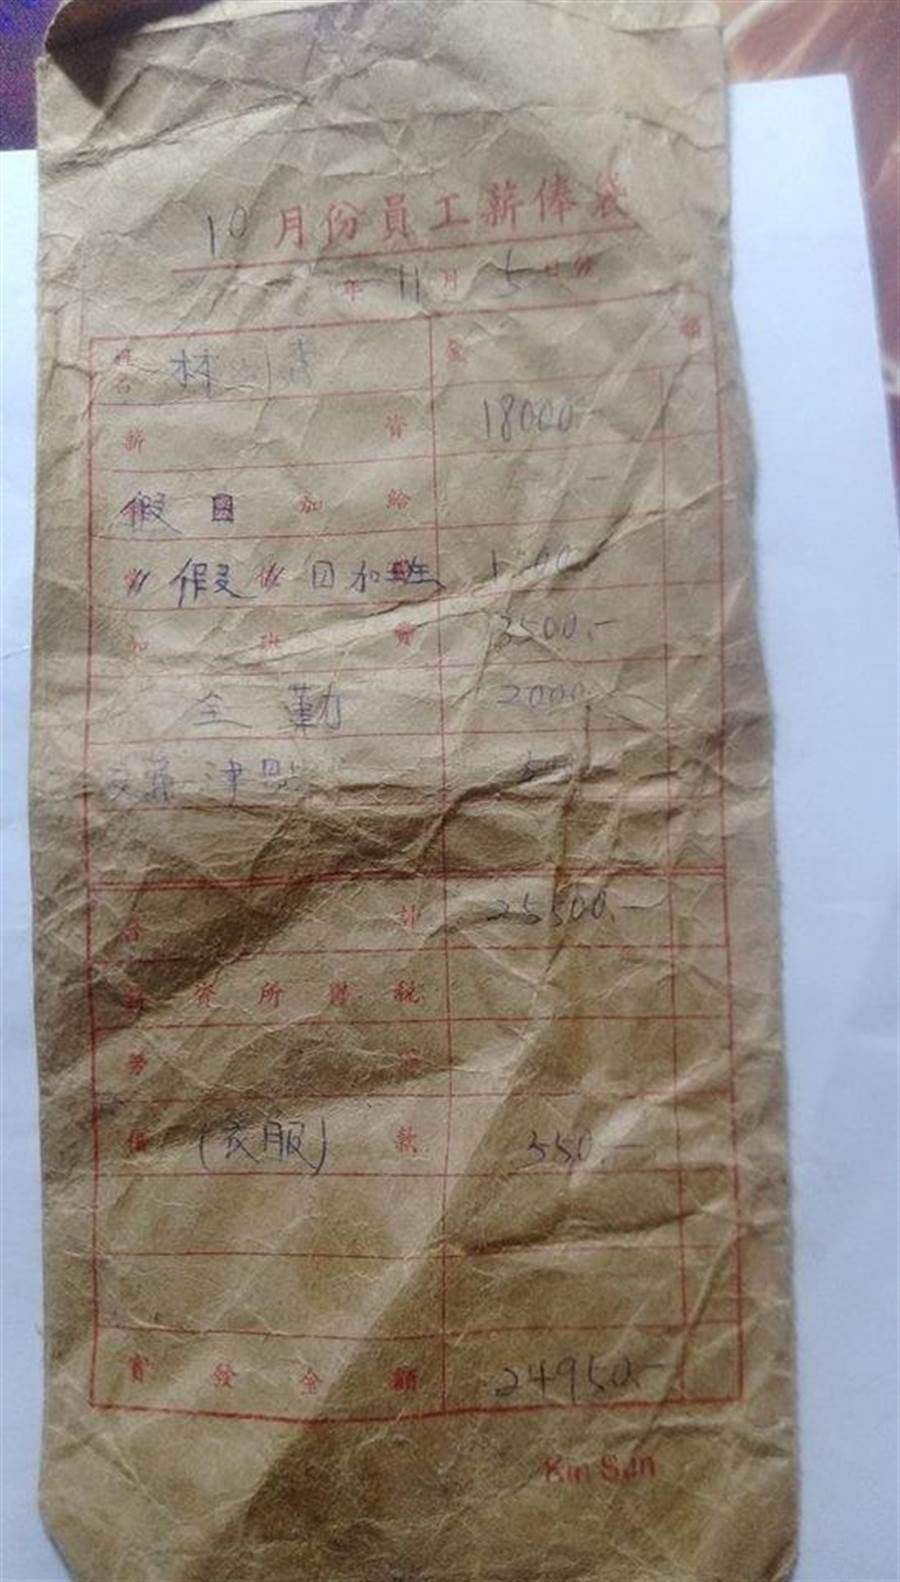 10月份員工薪俸袋
年 11 月 5 日份
姓名 林 金 額
薪 資 18000.-
假日 加 給 -
〃 假 〃 日加班
加 班 費 3500.-
全 勤 2000.-
交通津貼
合 計 25500.-
薪 資 所 得 稅
勞
借 (衣服) 款 550.-
實 發 金 額 24950.-
Kin San